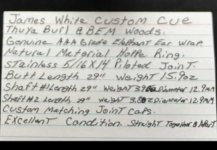 James White Custom Cue
Thuya Burl & BEM Woods.
Genuine AAA Grade Elephant Ear Wrap
Natural Material Hoppe Ring
Stainless 5/16 X 14 Piloted Joint
Butt Length 29" Weight 15.9oz
Shaft #1 Length 29" Weight 3.8oz Diameter 12.9mm
Shaft #2 Length 29" Weight Diameter 12.9mm
Custom Matching Joint Caps.
Excellent Condition Straight Together &